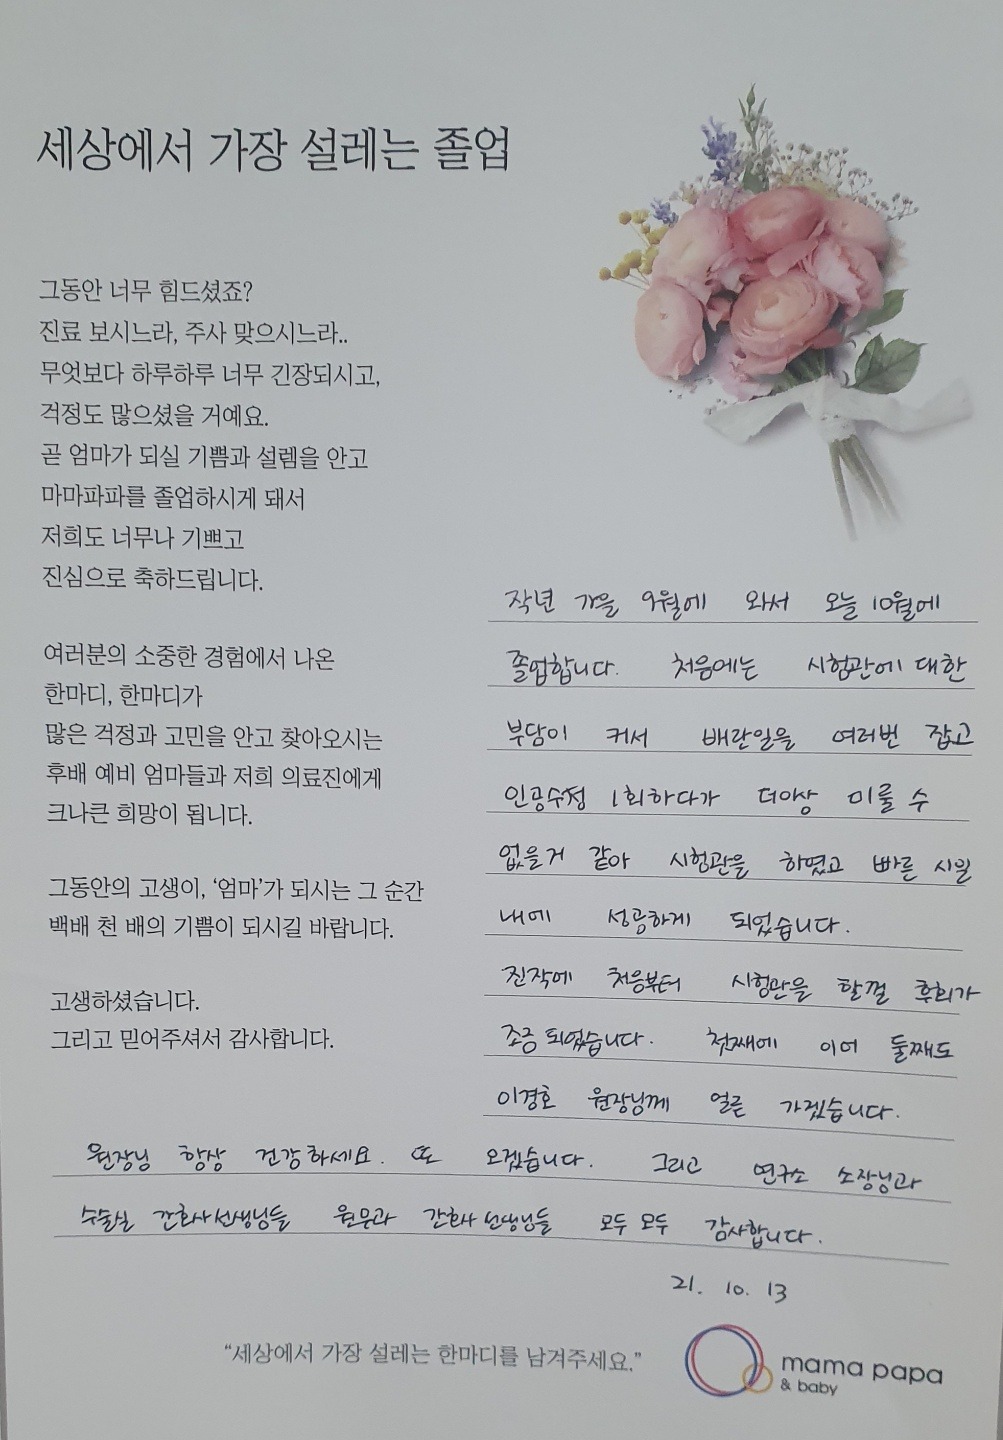 세상에서 가장 설레는 졸업
그동안 너무 힘드셨죠?
진료 보시느라, 주사 맞으시느라..
무엇보다 하루하루 너무 긴장되시고,
걱정도 많으셨을 거예요.
곧 엄마가 되실 기쁨과 설렘을 안고
마마파파를 졸업하시게 돼서
저희도 너무나 기쁘고
진심으로 축하드립니다.
여러분의 소중한 경험에서 나온
한마디, 한마디가
많은 걱정과 고민을 안고 찾아오시는
후배 예비 엄마들과 저희 의료진에게
크나큰 희망이 됩니다.
그동안의 고생이, '엄마'가 되시는 그 순간
백배 천 배의 기쁨이 되시길 바랍니다.
고생하셨습니다.
그리고 믿어주셔서 감사합니다.
작년 가을 9월에 와서 오늘 10월에
졸업합니다. 처음에는 시험관에 대한
부담이 커서 배란일을 여러번 잡고
인공수정 1회하다가 더이상 미룰 수
없을거 같아 시험관을 하였고 빠른 시일
내에 성공하게 되었습니다.
진작에 처음부터 시험관을 할껄 후회가
조금 되었습니다. 첫째에 이어 둘째도
이경호 원장님께 얼른 가겠습니다.
원장님 항상 건강하세요. 또 오겠습니다. 그리고 연구소 소장님과
수술실 간호사선생님들 원무과 간호사 선생님들 모두 모두 감사합니다.
21. 10. 13
"세상에서 가장 설레는 한마디를 남겨주세요."
mama papa
& baby